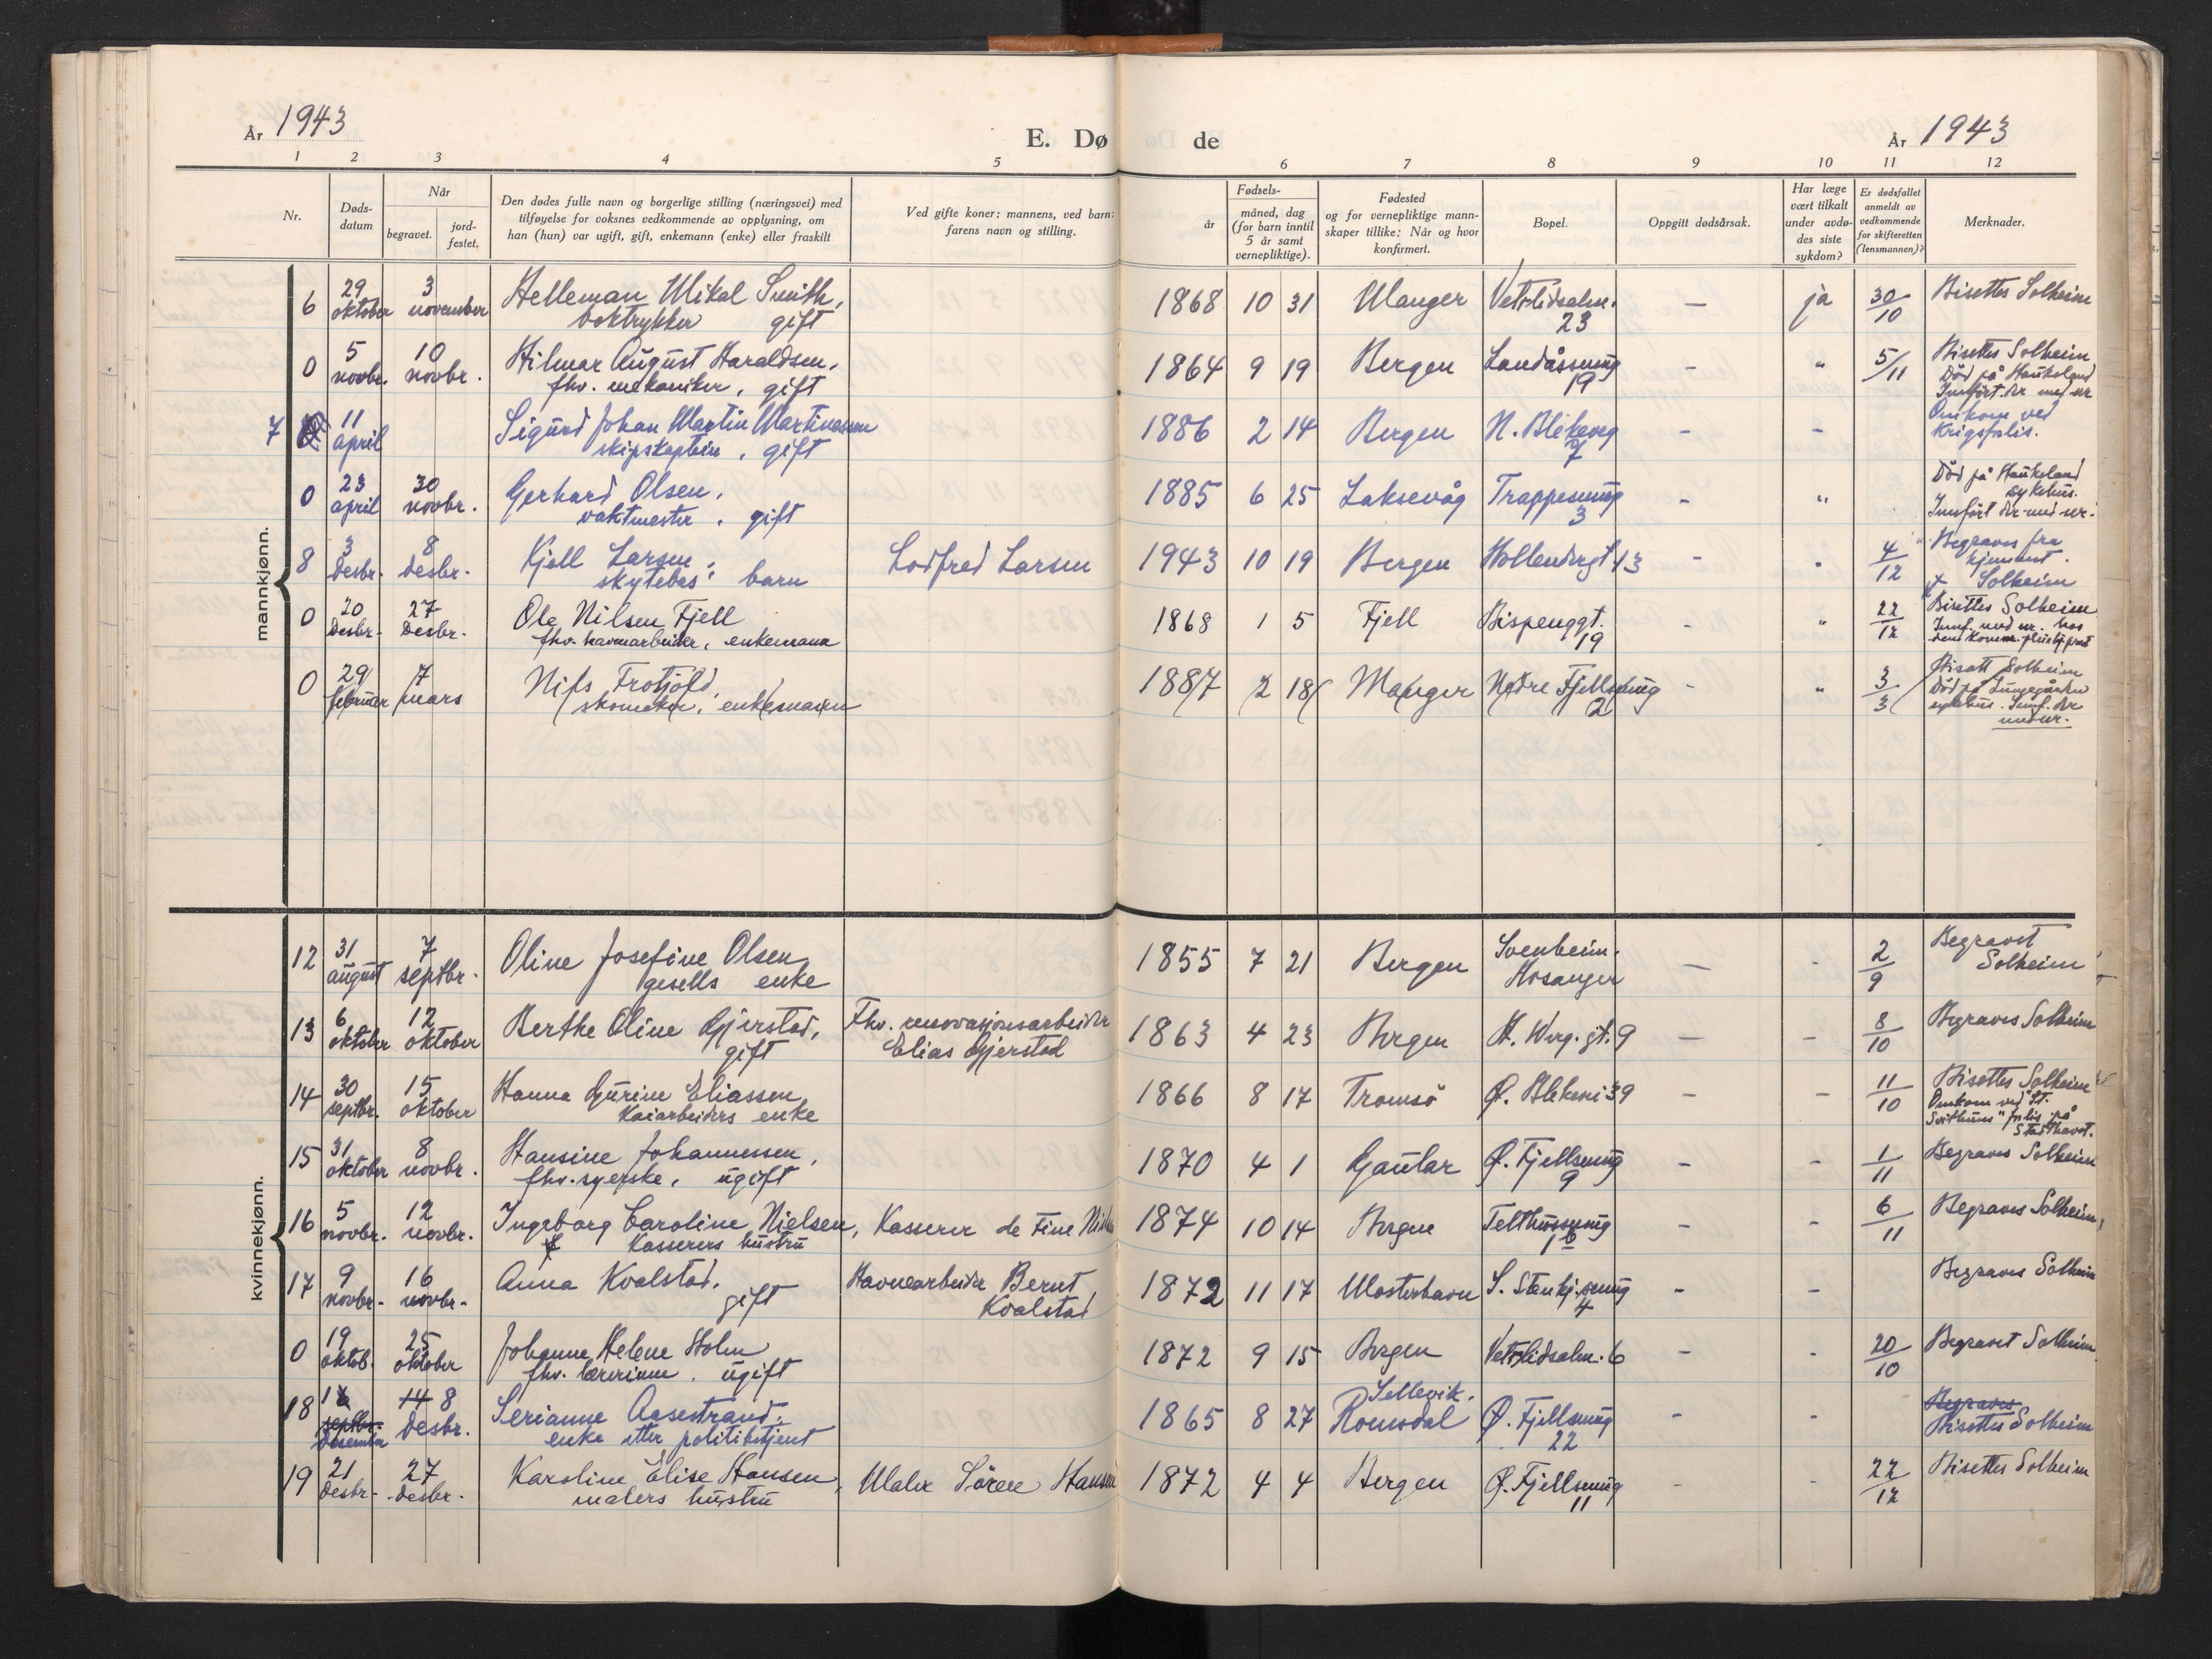 År 1943
E. Dø
de
År 1943
1 2 3 4 5 6 7 8 9 10 11 12
Nr.
Døds-
datum
Når
begravet.
jord-
festet.
Den dødes fulle navn og borgerlige stilling (næringsvei) med
tilføyelse for voksnes vedkommende av opplysning, om
han (hun) var ugift, gift, enkemann (enke) eller fraskilt
Ved gifte koner: mannens, ved barn:
farens navn og stilling.
Fødsels-
år
måned, dag
(for barn inntil
5 år samt
vernepliktige).
Fødested
og for vernepliktige mann-
skaper tillike: Når og hvor
konfirmert.
Bopel.
Oppgitt dødsårsak.
Har læge
vært tilkalt
under avdø-
des siste
sykdom?
Er dødsfallet
anmeldt av
vedkommende
for skifteretten
(lensmannen)?
Merknader.
mannkjønn.
6 29 oktober 3 november Helleman Mikal Smith, 1868 10 31 Manger Vetrlidsalm. — ja 30/10 Bisettes Solheim
boktrykker gift 23
0 5 novbr. 10 novbr. Hilmar August Haraldsen, 1864 9 19 Bergen Landåssmug " 5/11 Bisettes Solheim
fhv. mekaniker, gift 19 Död på Haukeland
Innført der med nr
7 11 april Sigurd Johan Martin Martinessen 1886 2 14 Bergen N. Blekeveg - - Omkom ved
skipskaptein, gift 7 Krigsforlis.
0 23 april 30 novbr. Gerhard Olsen, 1885 6 25 Laksevåg Trappesmug - " Död på Haukeland
vaktmester, gift 3 sykehus.
Innført der med nr.
8 3 desbr. 8 desbr. Kjell Larsen, Lodfred Larsen 1943 10 19 Bergen Hollendergt 13 - " 4/12 Begraves fra
skytebas' barn hjemmet.
Solheim
0 20 desbr. 27 desbr. Ole Nilsen Fjell 1868 1 5 Fjell Bispenggt. - " 22/12 Bisettes Solheim
fhv. havnearbeider, enkemann 19 Innf. med nr. hos
0 29 februar 7 mars Nils Trotjold, 1887 2 18 Manger Nedre Fjellsmug - " 3/3 Bisatt Solheim
skomaker, enkemann 2 Død på Lungegården
sykehus. Innf. der
med nr.
kvinnekjønn.
12 31 august 7 septbr. Oline Josefine Olsen 1855 7 21 Bergen Svenheim. — - 2/9 Begravet
gesells enke Hosanger Solheim
13 6 oktober 12 oktober Berthe Oline Gjerstad, Fhv. renovasjonsarbeider 1863 4 23 Bergen H. Werg. gt. 9 - - 8/10 Begraves Solheim
gift Elias Gjerstad
14 30 septbr. 15 oktober Hanna Gurine Eliassen 1866 8 17 Tromsö Ø. Blekevei 39 - - 11/10 Bisettes Solheim
Kaiarbeiders enke Omkom ved "St.
Svithuns" forlis på
Stadthavet.
15 31 oktober 8 novbr. Hansine Johannessen, 1870 4 1 Gaular Ø. Fjellsmug - - 1/11 Begraves Solheim
fhv. syerske, ugift 9
16 5 novbr. 12 novbr. Ingeborg Caroline Nielsen, Kasserer de Fine 1874 10 14 Bergen Telthussmug - - 6/11 Begraves Solheim
Kasserers hustru 16
17 9 novbr. 16 novbr. Anna Kvalstad, Havnearbeider Bernt 1872 11 17 Mosterhavn S. Stenkj. smug - - Begraves Solheim
gift Kvalstad 4
0 19 oktob. 25 oktober Johanne Helene Holm 1872 9 15 Bergen Vetrlidsalm. 6 - - 20/10 Begravet Solheim
fhv. lærerinne, ugift
18 septbr. desember 14 8 desbr. Serianne Aasestrand, 1865 8 27 Sellevik. Romsdal Ø. Fjellsmug - - Begraves
enke etter politibetjent 22 Bisettes Solheim
19 21 desbr. 27 desbr. Karoline Elise Hansen, Maler Sören Hansen 1872 4 4 Bergen Ø. Fjellsmug - - 22/12 Bisettes Solheim
malers hustru 11